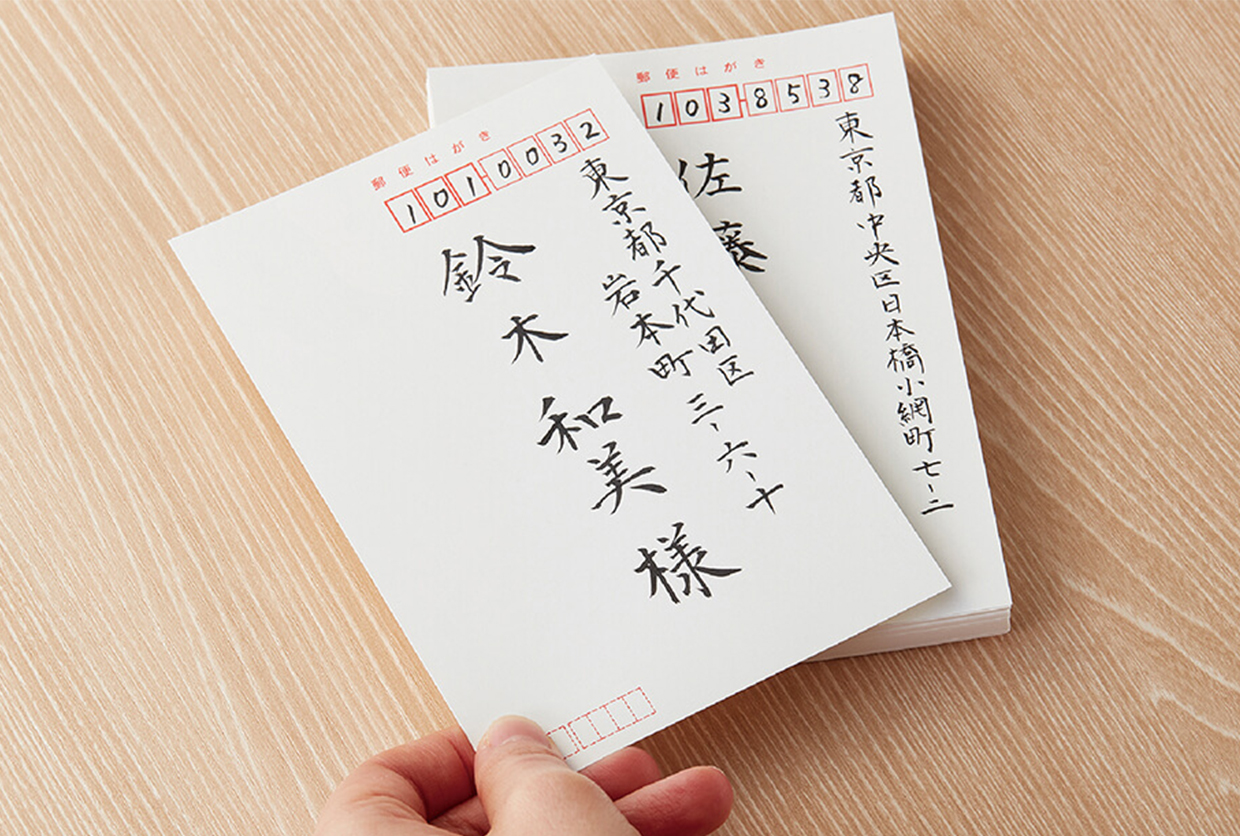 郵便はがき
101-0032
東京都千代田区
岩本町三-六-十
鈴木和美様
郵便はがき
103-8538
東京都中央区日本橋小網町七-二
佐藤